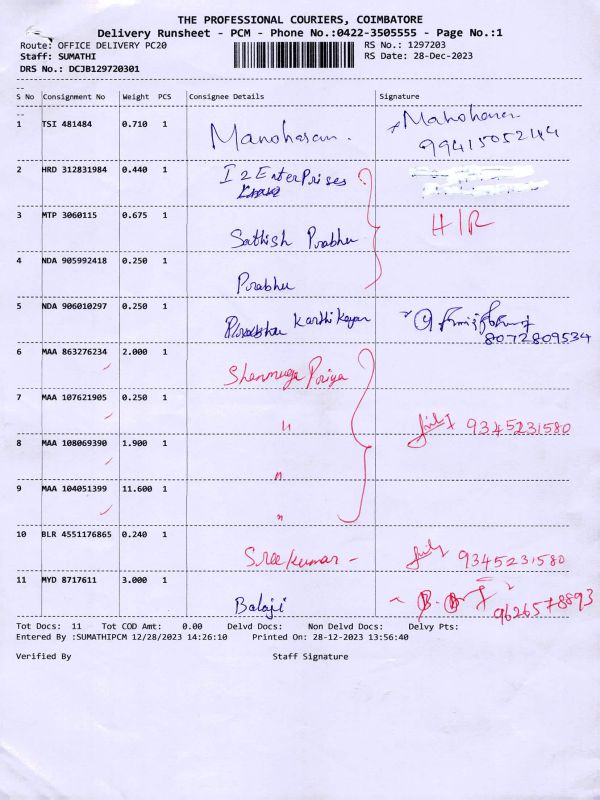 THE PROFESSIONAL COURIERS, COIMBATORE
Delivery Runsheet - PCM - Phone No.:0422-3505555 - Page No.:1
Route: OFFICE DELIVERY PC20 RS No.: 1297203
Staff: SUMATHI RS Date: 28-Dec-2023
DRS No.: DCJB129720301
S No Consignment No Weight PCS Consignee Details Signature
1 TSI 481484 0.710 1 Manoharan. Manoharan
99415052144
2 HRD 312831984 0.440 1 I 2 EnterPrises
H/R
3 MTP 3060115 0.675 1 Sathish Prabhu
4 NDA 905992418 0.250 1 Prabhu
5 NDA 906010297 0.250 1 Karthikeyan
8072809534
6 MAA 863276234 2.000 1 Shanmuga Priya
7 MAA 107621905 0.250 1 " 9345231580
8 MAA 108069390 1.900 1 "
9 MAA 104051399 11.600 1 "
10 BLR 4551176865 0.240 1 Sreekumar - 9345231580
11 MYD 8717611 3.000 1 Balaji 9626578893
Tot Docs: 11 Tot COD Amt: 0.00 Delvd Docs: Non Delvd Docs: Delvy Pts:
Entered By :SUMATHIPCM 12/28/2023 14:26:10 Printed On: 28-12-2023 13:56:40
Verified By Staff Signature